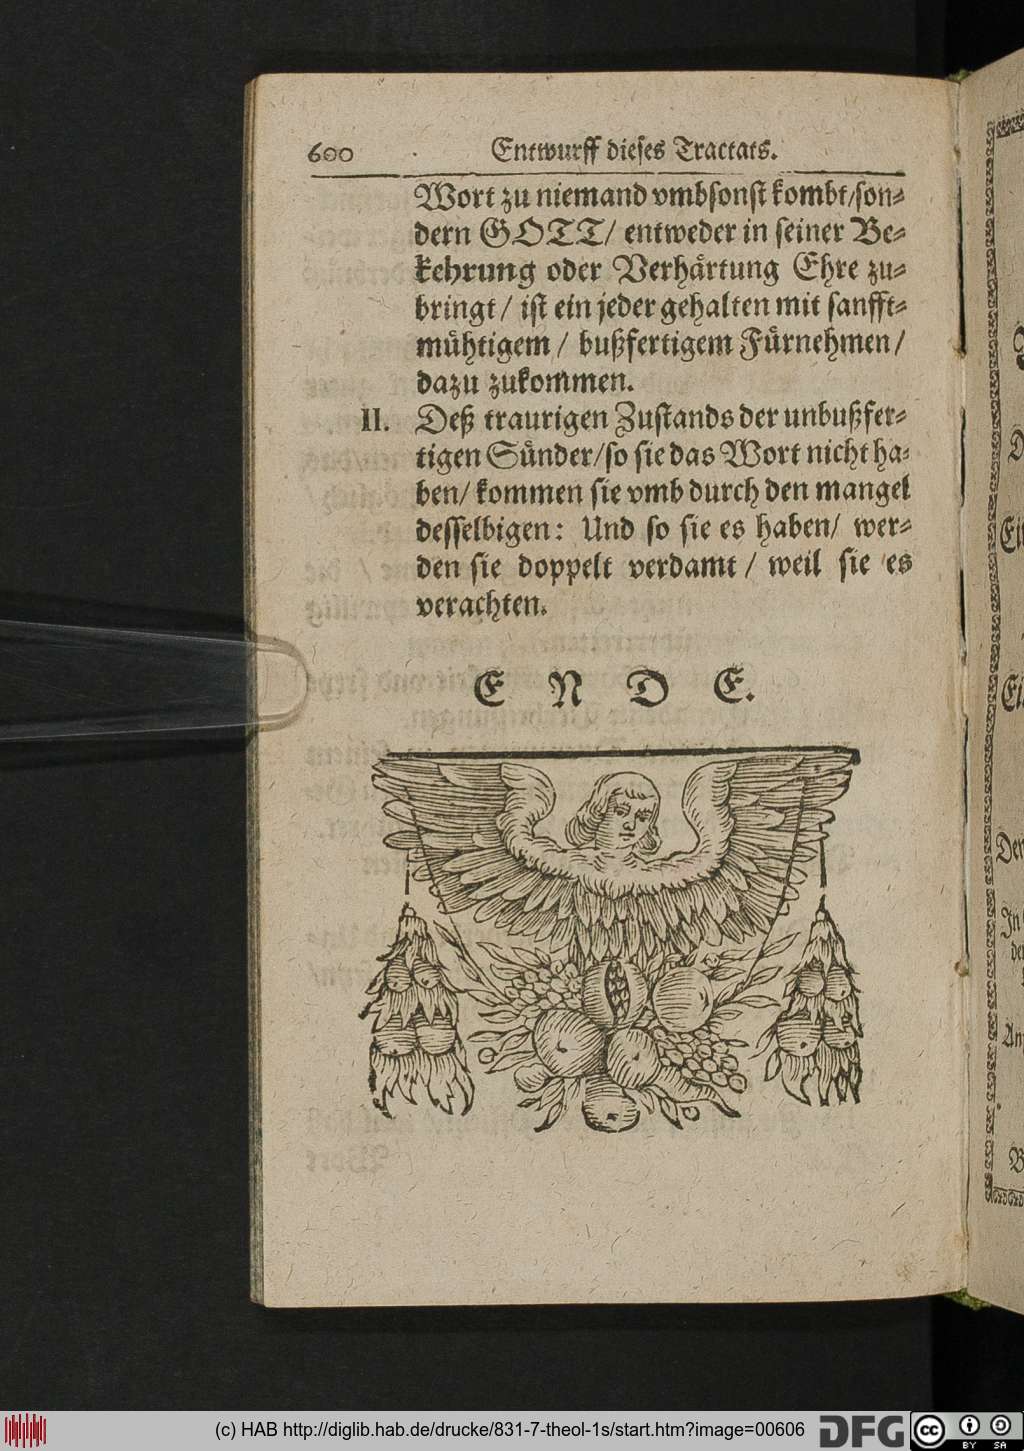 600 Entwurff dieses Tractats.
Wort zu niemand vmbsonst kombt/son-
dern GOTT/ entweder in seiner Be-
kehrung oder Verhärtung Ehre zu-
bringt/ ist ein jeder gehalten mit sanfft-
mühtigem/ bußfertigem Fürnehmen/
dazu zukommen.
II. Deß traurigen Zustands der unbußfer-
tigen Sünder/so sie das Wort nicht ha-
ben/ kommen sie vmb durch den mangel
desselbigen: Und so sie es haben/ wer-
den sie doppelt verdamt/ weil sie es
verachten.
E N D E.
(c) HAB http://diglib.hab.de/drucke/831-7-theol-1s/start.htm?image=00606
DFG
cc BY SA